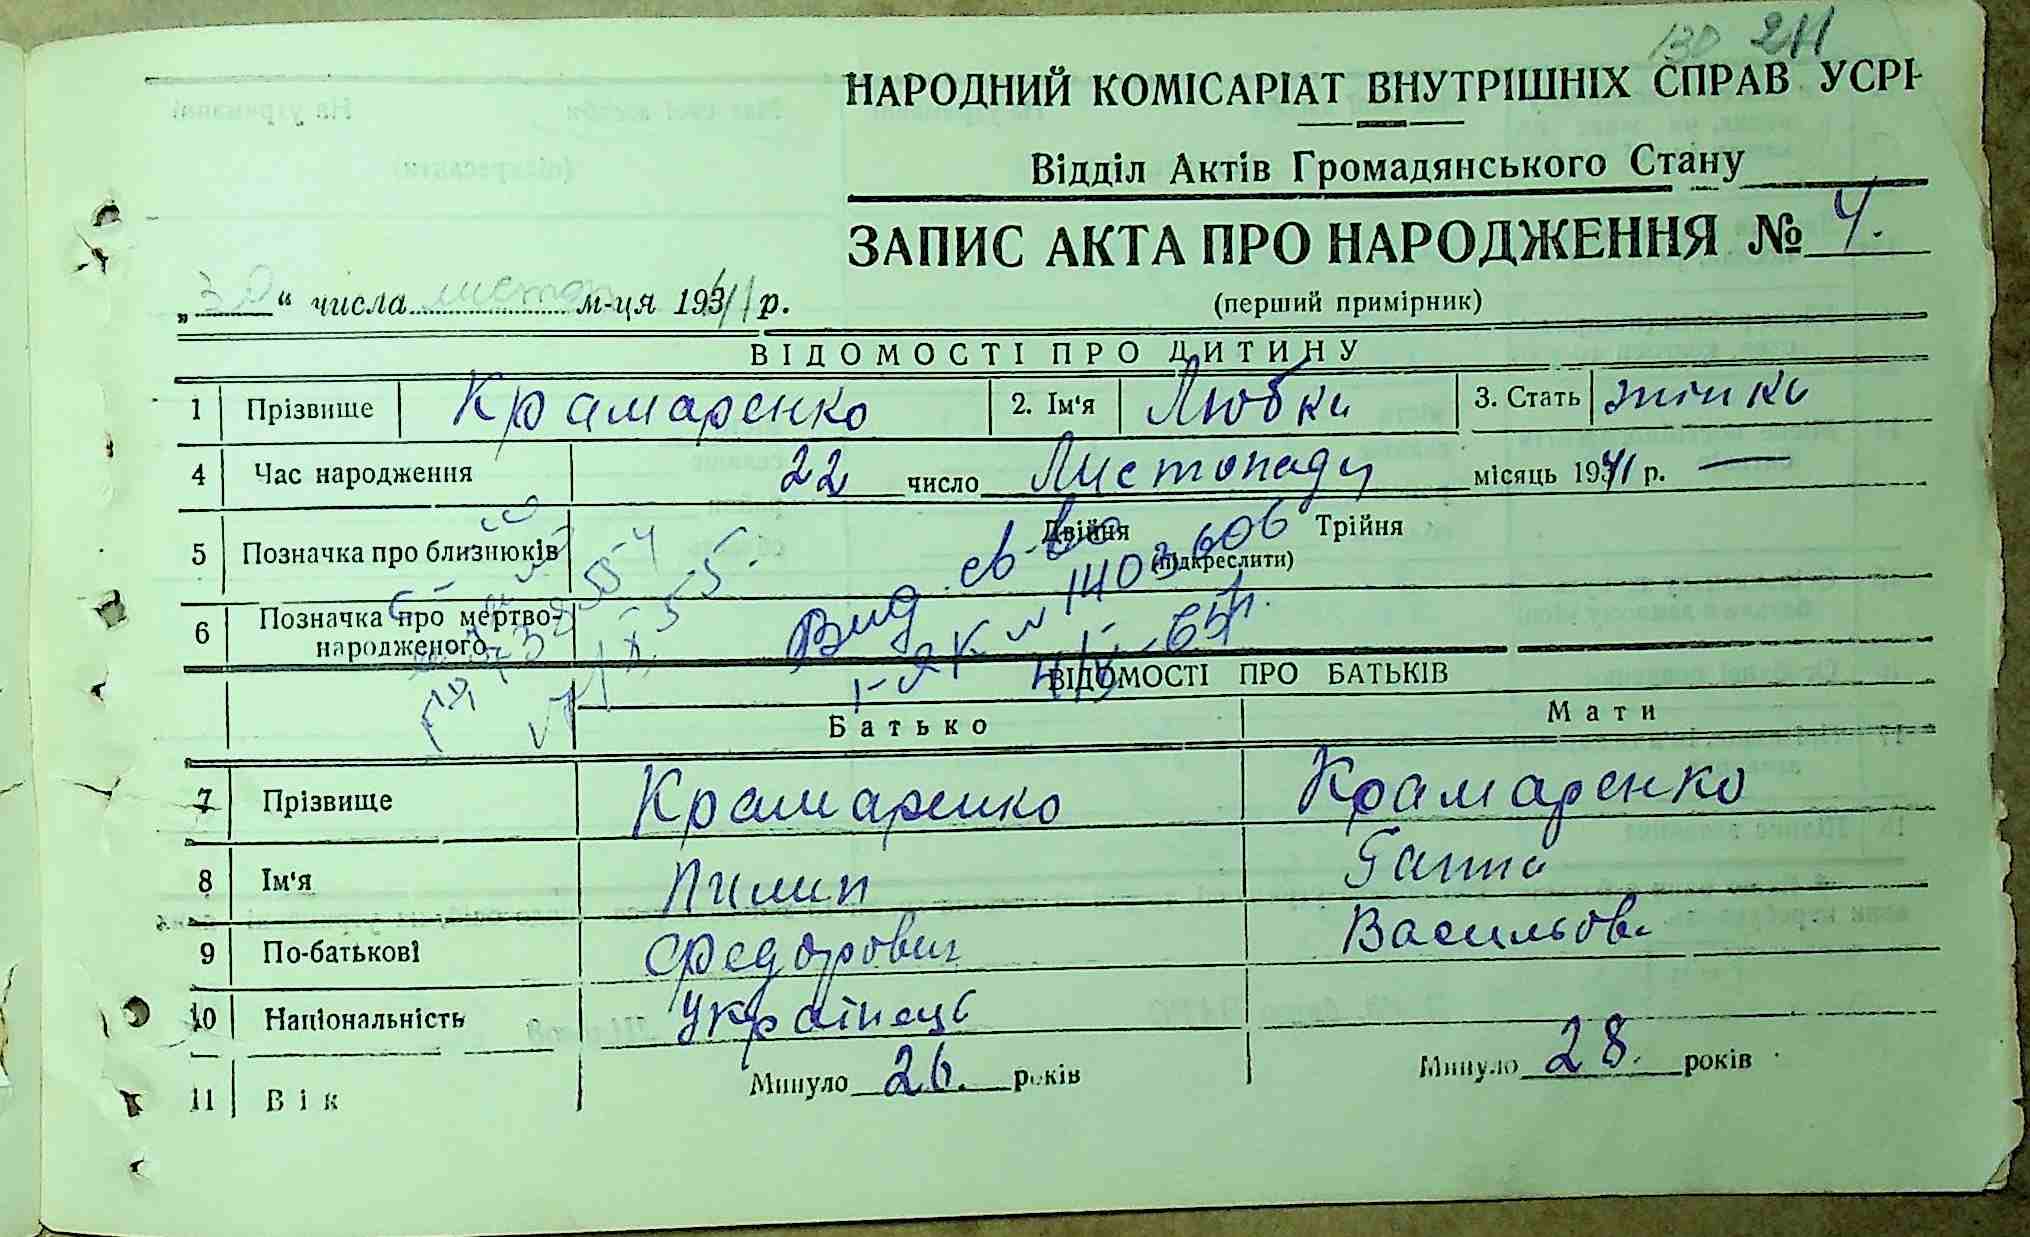 130 211
НАРОДНИЙ КОМІСАРІАТ ВНУТРІШНІХ СПРАВ УСРР
Відділ Актів Громадянського Стану
ЗАПИС АКТА ПРО НАРОДЖЕННЯ № 4.
„30“ числа листоп м-ця 1941 р.
(перший примірник)
ВІДОМОСТІ ПРО ДИТИНУ
1 Прізвище Крамаренко 2. Ім'я Любка 3. Стать жіноча
4 Час народження 22 число Листопаду місяць 1941 р. —
5 Позначка про близнюків Двійня Трійня
(підкреслити)
Вид. св-во
I-ЯК № 1403606
6 Позначка про мертво-
народженого
ВІДОМОСТІ ПРО БАТЬКІВ
Батько Мати
7 Прізвище Крамаренко Крамаренко
8 Ім'я Пилип Ганна
9 По-батькові Федорович Васильов.
10 Національність Українець
11 Вік Минуло 26. років Минуло 28. років